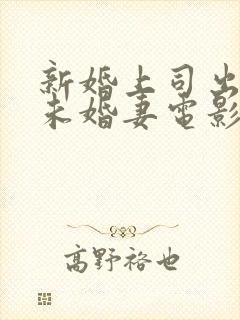 新婚上司出
未婚妻電影
高野裕也